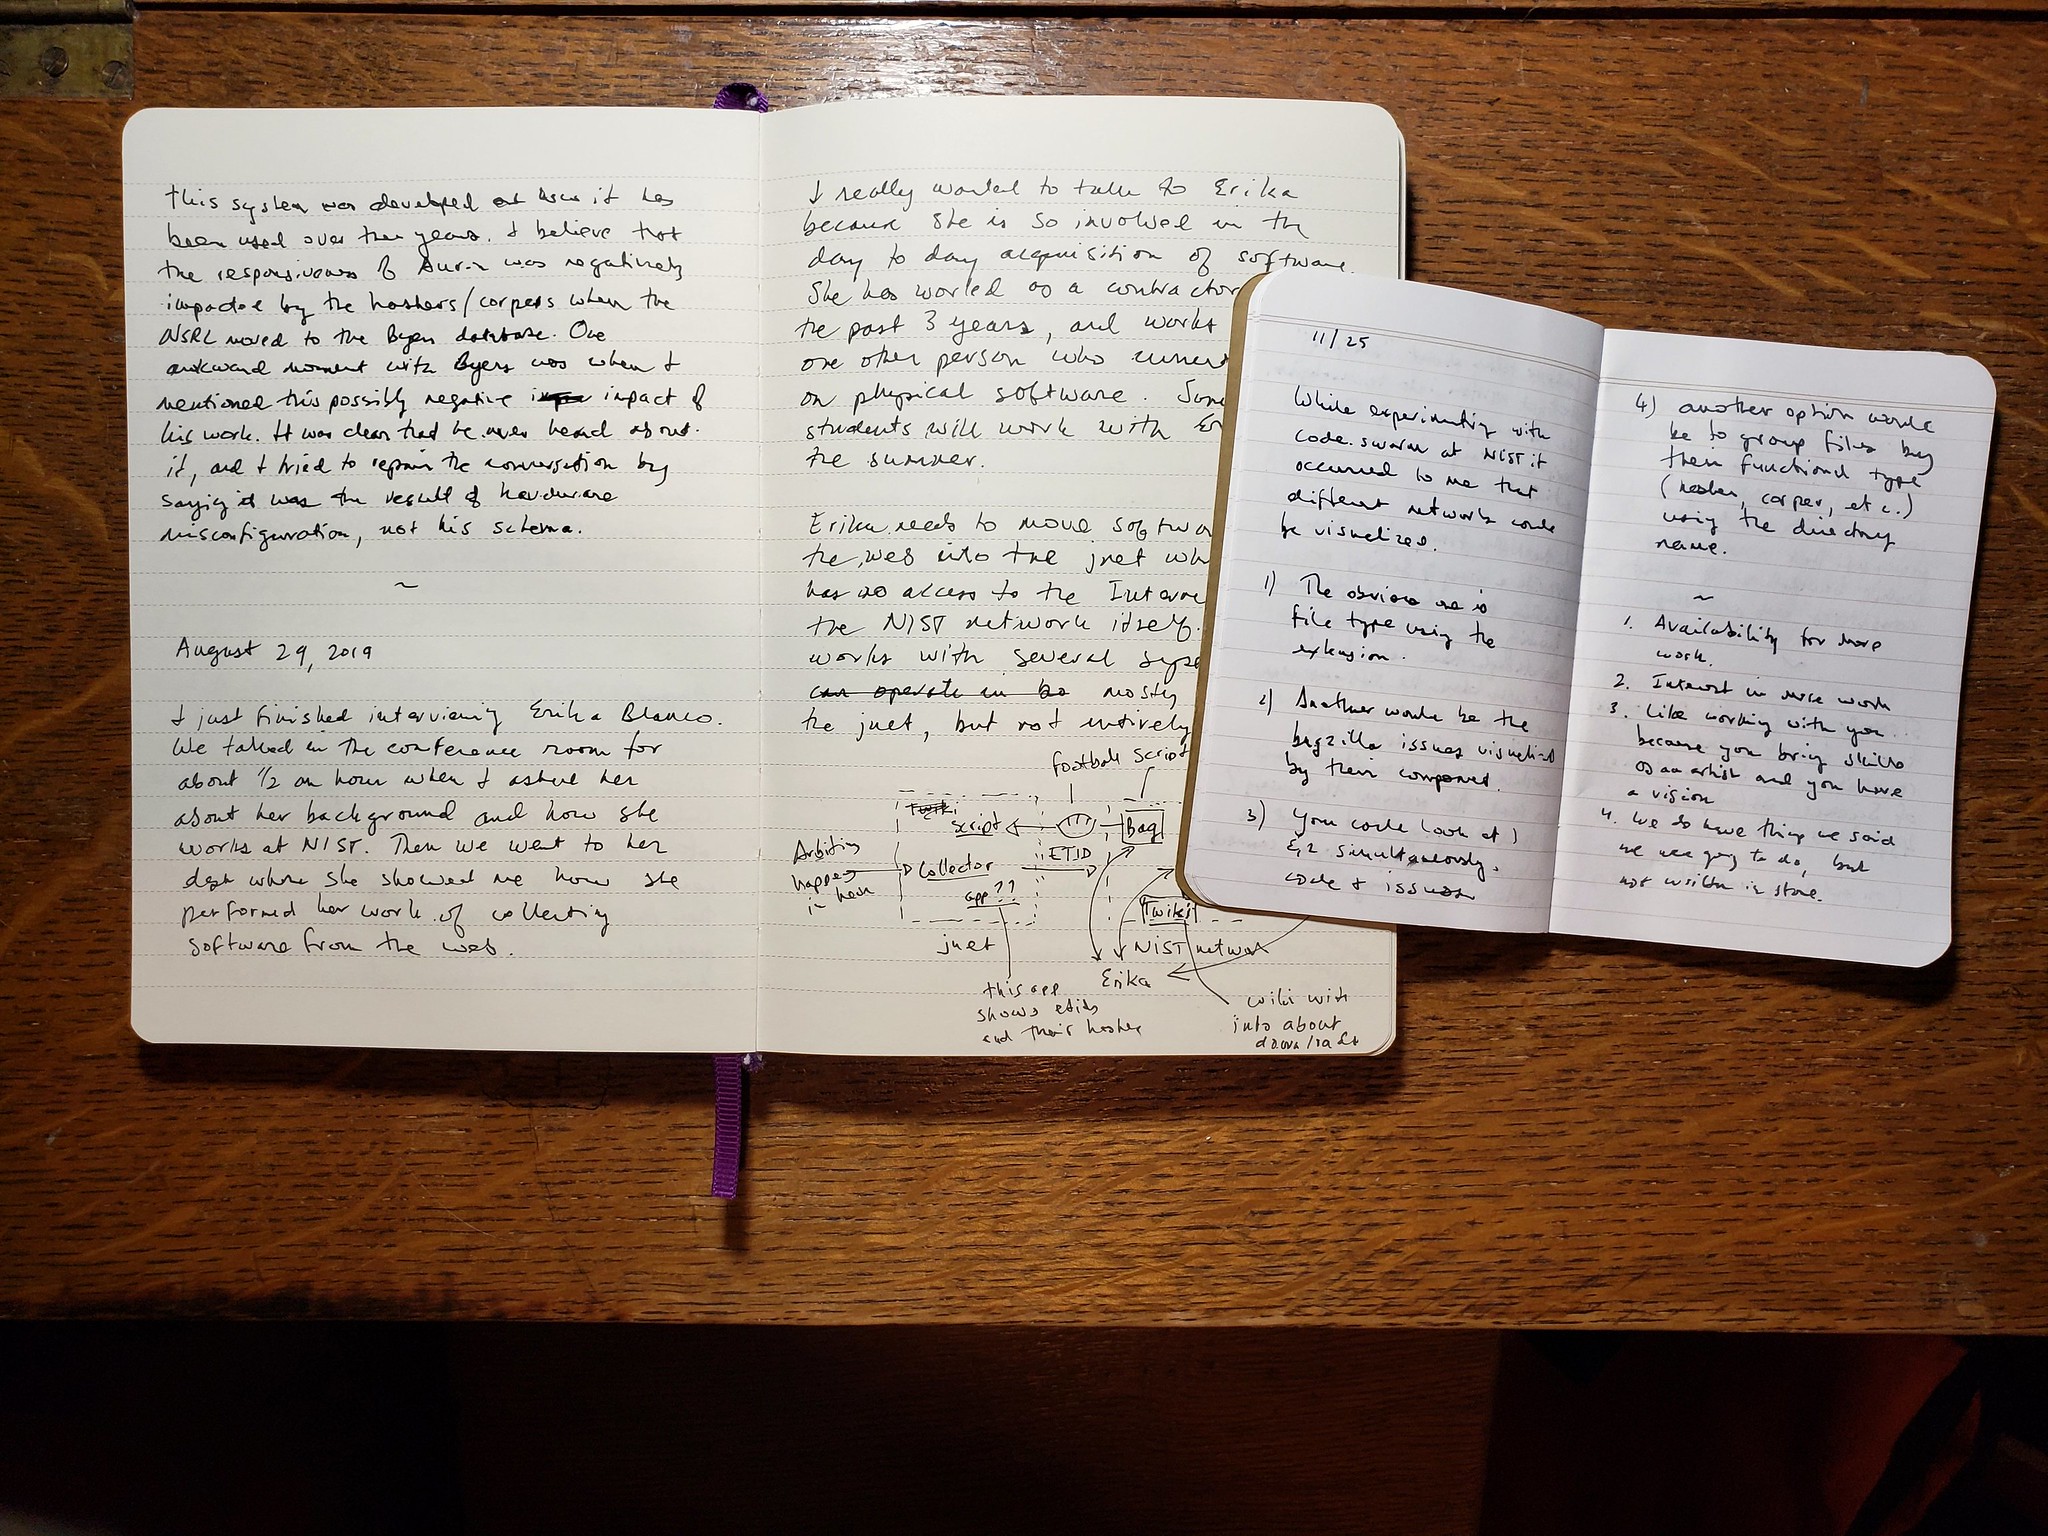 this system was developed and how it has
been used over the years. I believe that
the responsiveness of was negatively
impacted by the hashers/corpers when the
NSRL moved to the Byers database. One
awkward moment with Byers was when I
mentioned this possibly negative impact of
his work. It was clear that he never heard about
it, and I tried to repair the conversation by
saying it was the result of hardware
misconfiguration, not his schema.
~
August 29, 2019
I just finished interviewing Erika Blanco.
We talked in the conference room for
about 1/2 an hour when I asked her
about her background and how she
works at NIST. Then we went to her
desk where she showed me how she
performed her work of collecting
software from the web.
I really wanted to talk to Erika
because she is so involved in the
day to day acquisition of software.
She has worked as a contractor
the past 3 years, and works
one other person who
on physical software. Some
students will work with Er
the summer.
Erika needs to move softwa
the web into the jnet wh
has no access to the Interne
the NIST network itself.
works with several
can operate in mostly
the jnet, but not entirely
football script
script
Bag
Arbitrary
happen
in here
Collector
ETID
app??
Twiki
jnet
NIST network
Erika
this app
shows etids
and their hashes
wiki with
info about
downloads
11/25
While experimenting with
code_swarm at NIST it
occurred to me that
different networks could
be visualized.
1) The obvious one is
file type using the
extension.
2) Another would be the
bugzilla issues visualized
by their component.
3) You could look at 1
& 2 simultaneously.
code & issues
4) another option would
be to group files by
their functional type
(hasher, corper, etc.)
using the directory
name.
~
1. Availability for more
work.
2. Interest in more work
3. Like working with you
because you bring skills
as an artist and you have
a vision
4. We do have things we said
we were going to do, but
not written in stone.